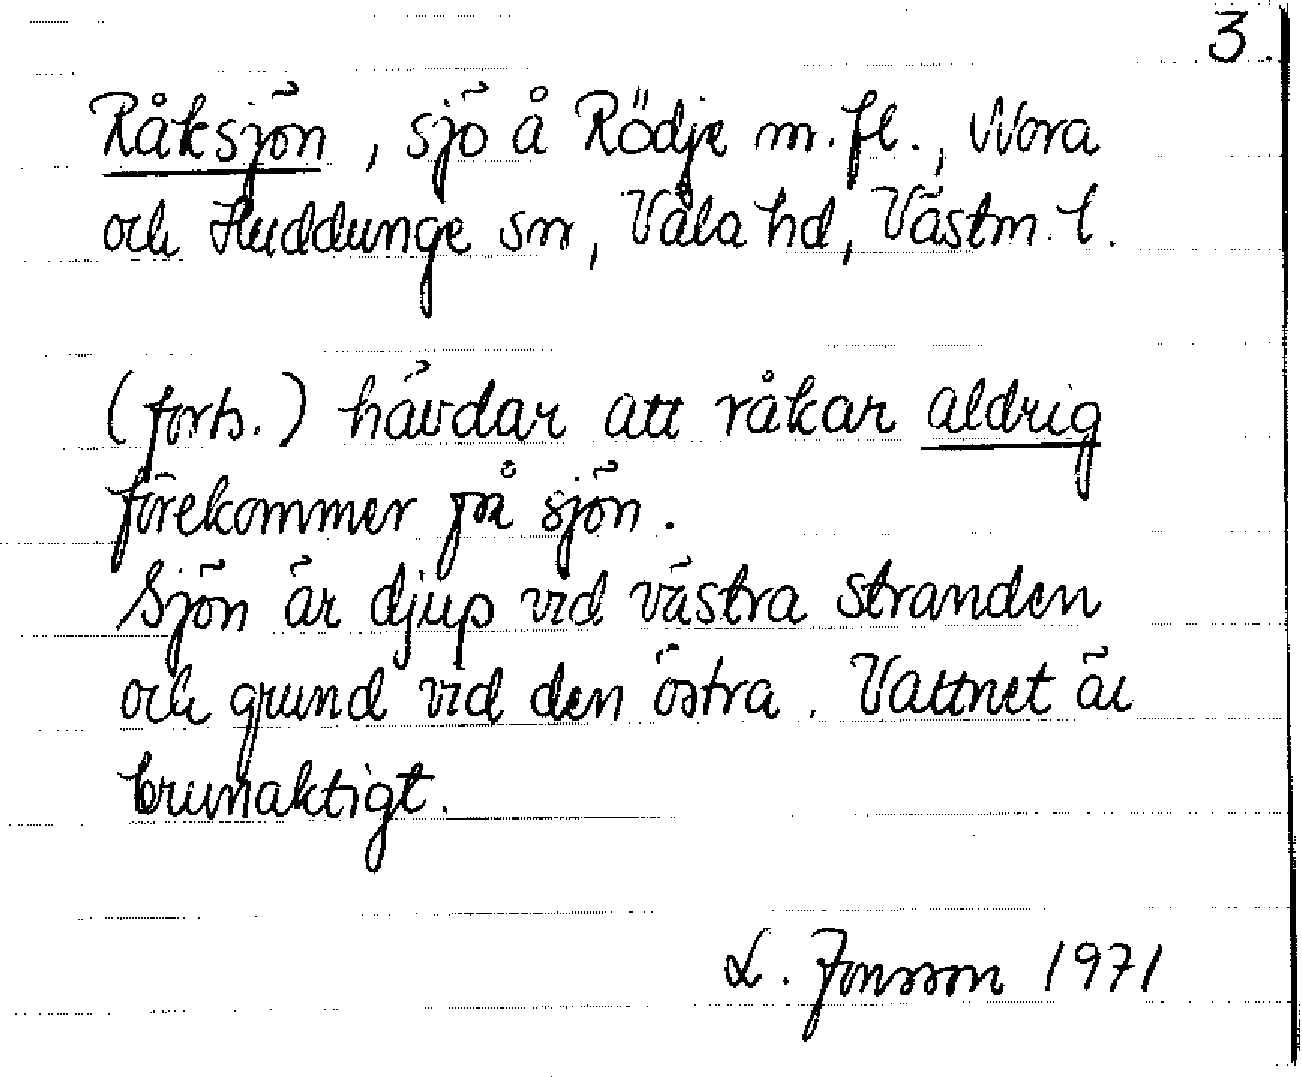 3.
Råksjön, sjö å Rödje m.fl., Nora
och Huddunge sn, Våla hd, Västm. l.
(forts.) hävdar att råkar aldrig
förekommer på sjön.
Sjön är djup vid västra stranden
och grund vid den östra. Vattnet är
brunaktigt.
L. Jonsson 1971